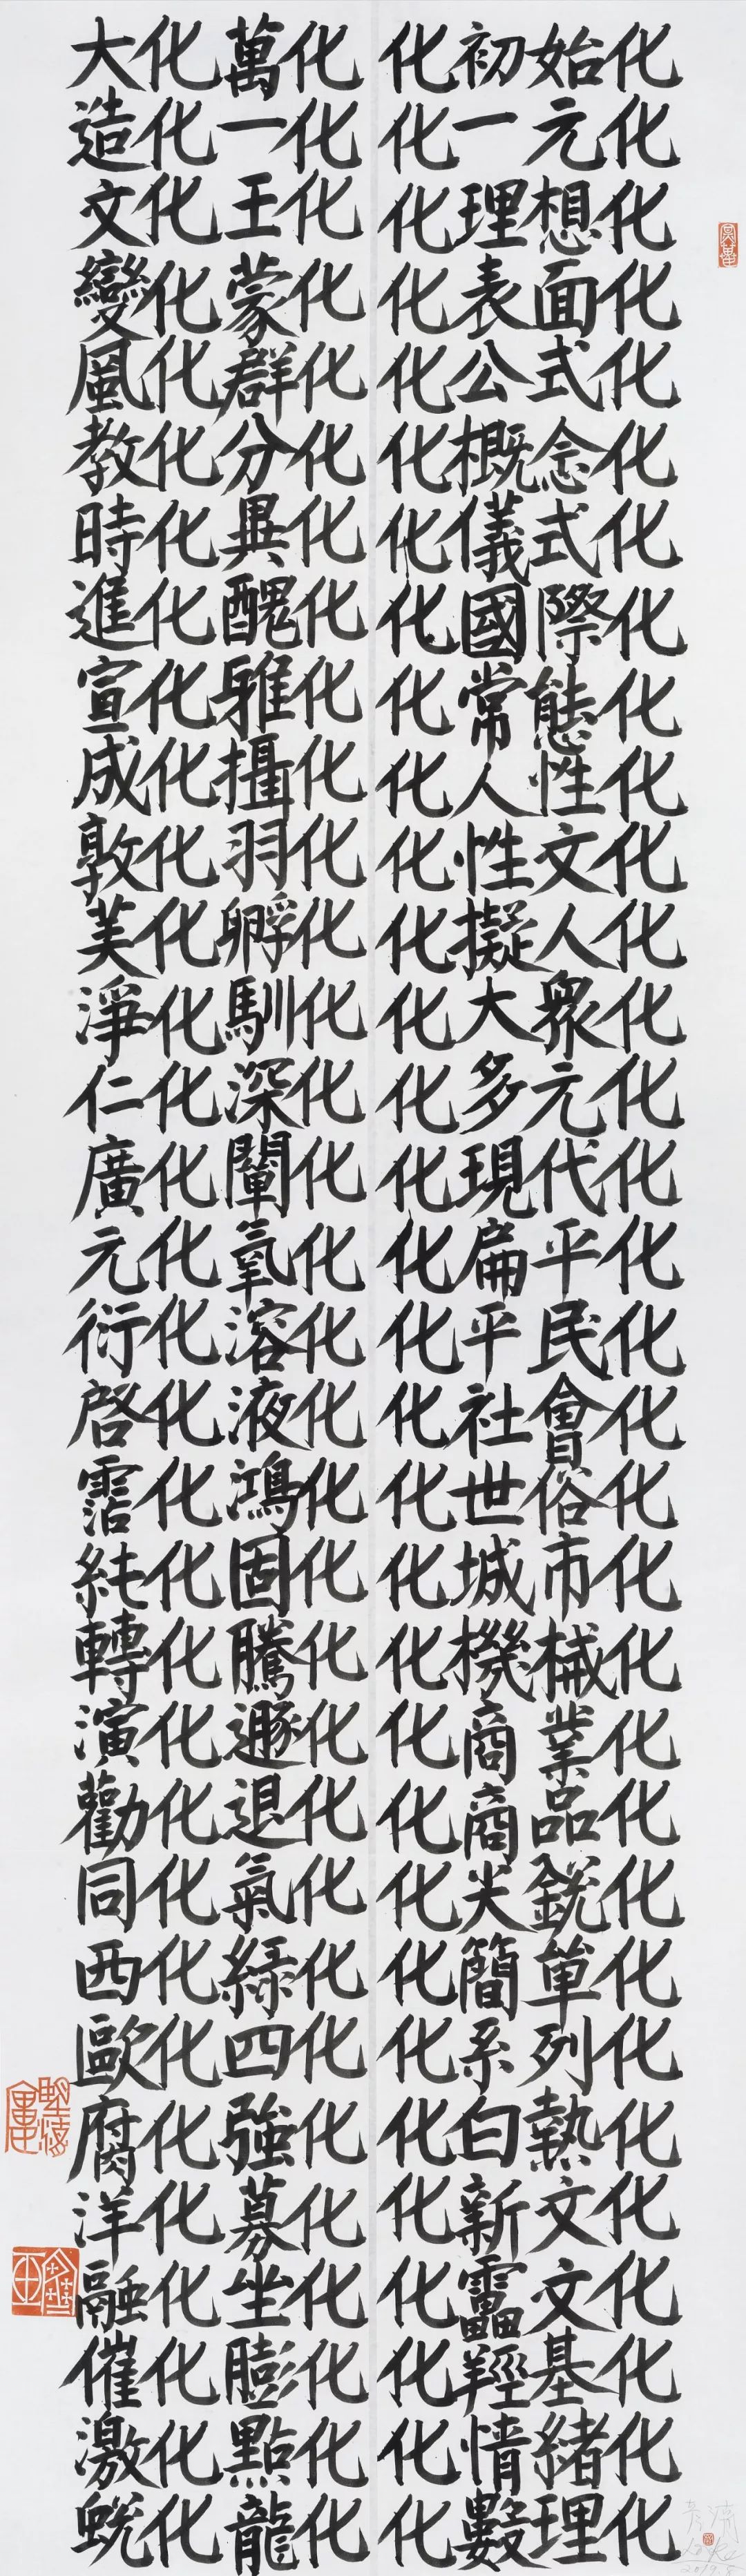 大化萬化化初始化
造化一化化一元化
文化王化化理想化
變化蒙化化表面化
風化群化化公式化
教化分化化概念化
時化異化化儀式化
進化醜化化國際化
宣化雅化化常態化
成化攝化化人性化
敦化羽化化性文化
美化孵化化擬人化
淨化馴化化大眾化
仁化深化化多元化
廣化闡化化現代化
元化氧化化扁平化
衍化溶化化平民化
啓化液化化社會化
霑化鴻化化世俗化
純化固化化城市化
轉化騰化化機械化
演化遯化化商業化
勸化退化化商品化
同化氣化化尖銳化
西化綠化化簡單化
歐化四化化系列化
腐化強化化白熱化
洋化募化化新文化
融化坐化化靁文化
催化膨化化羥基化
激化點化化情緒化
蛻化龍化化數理化